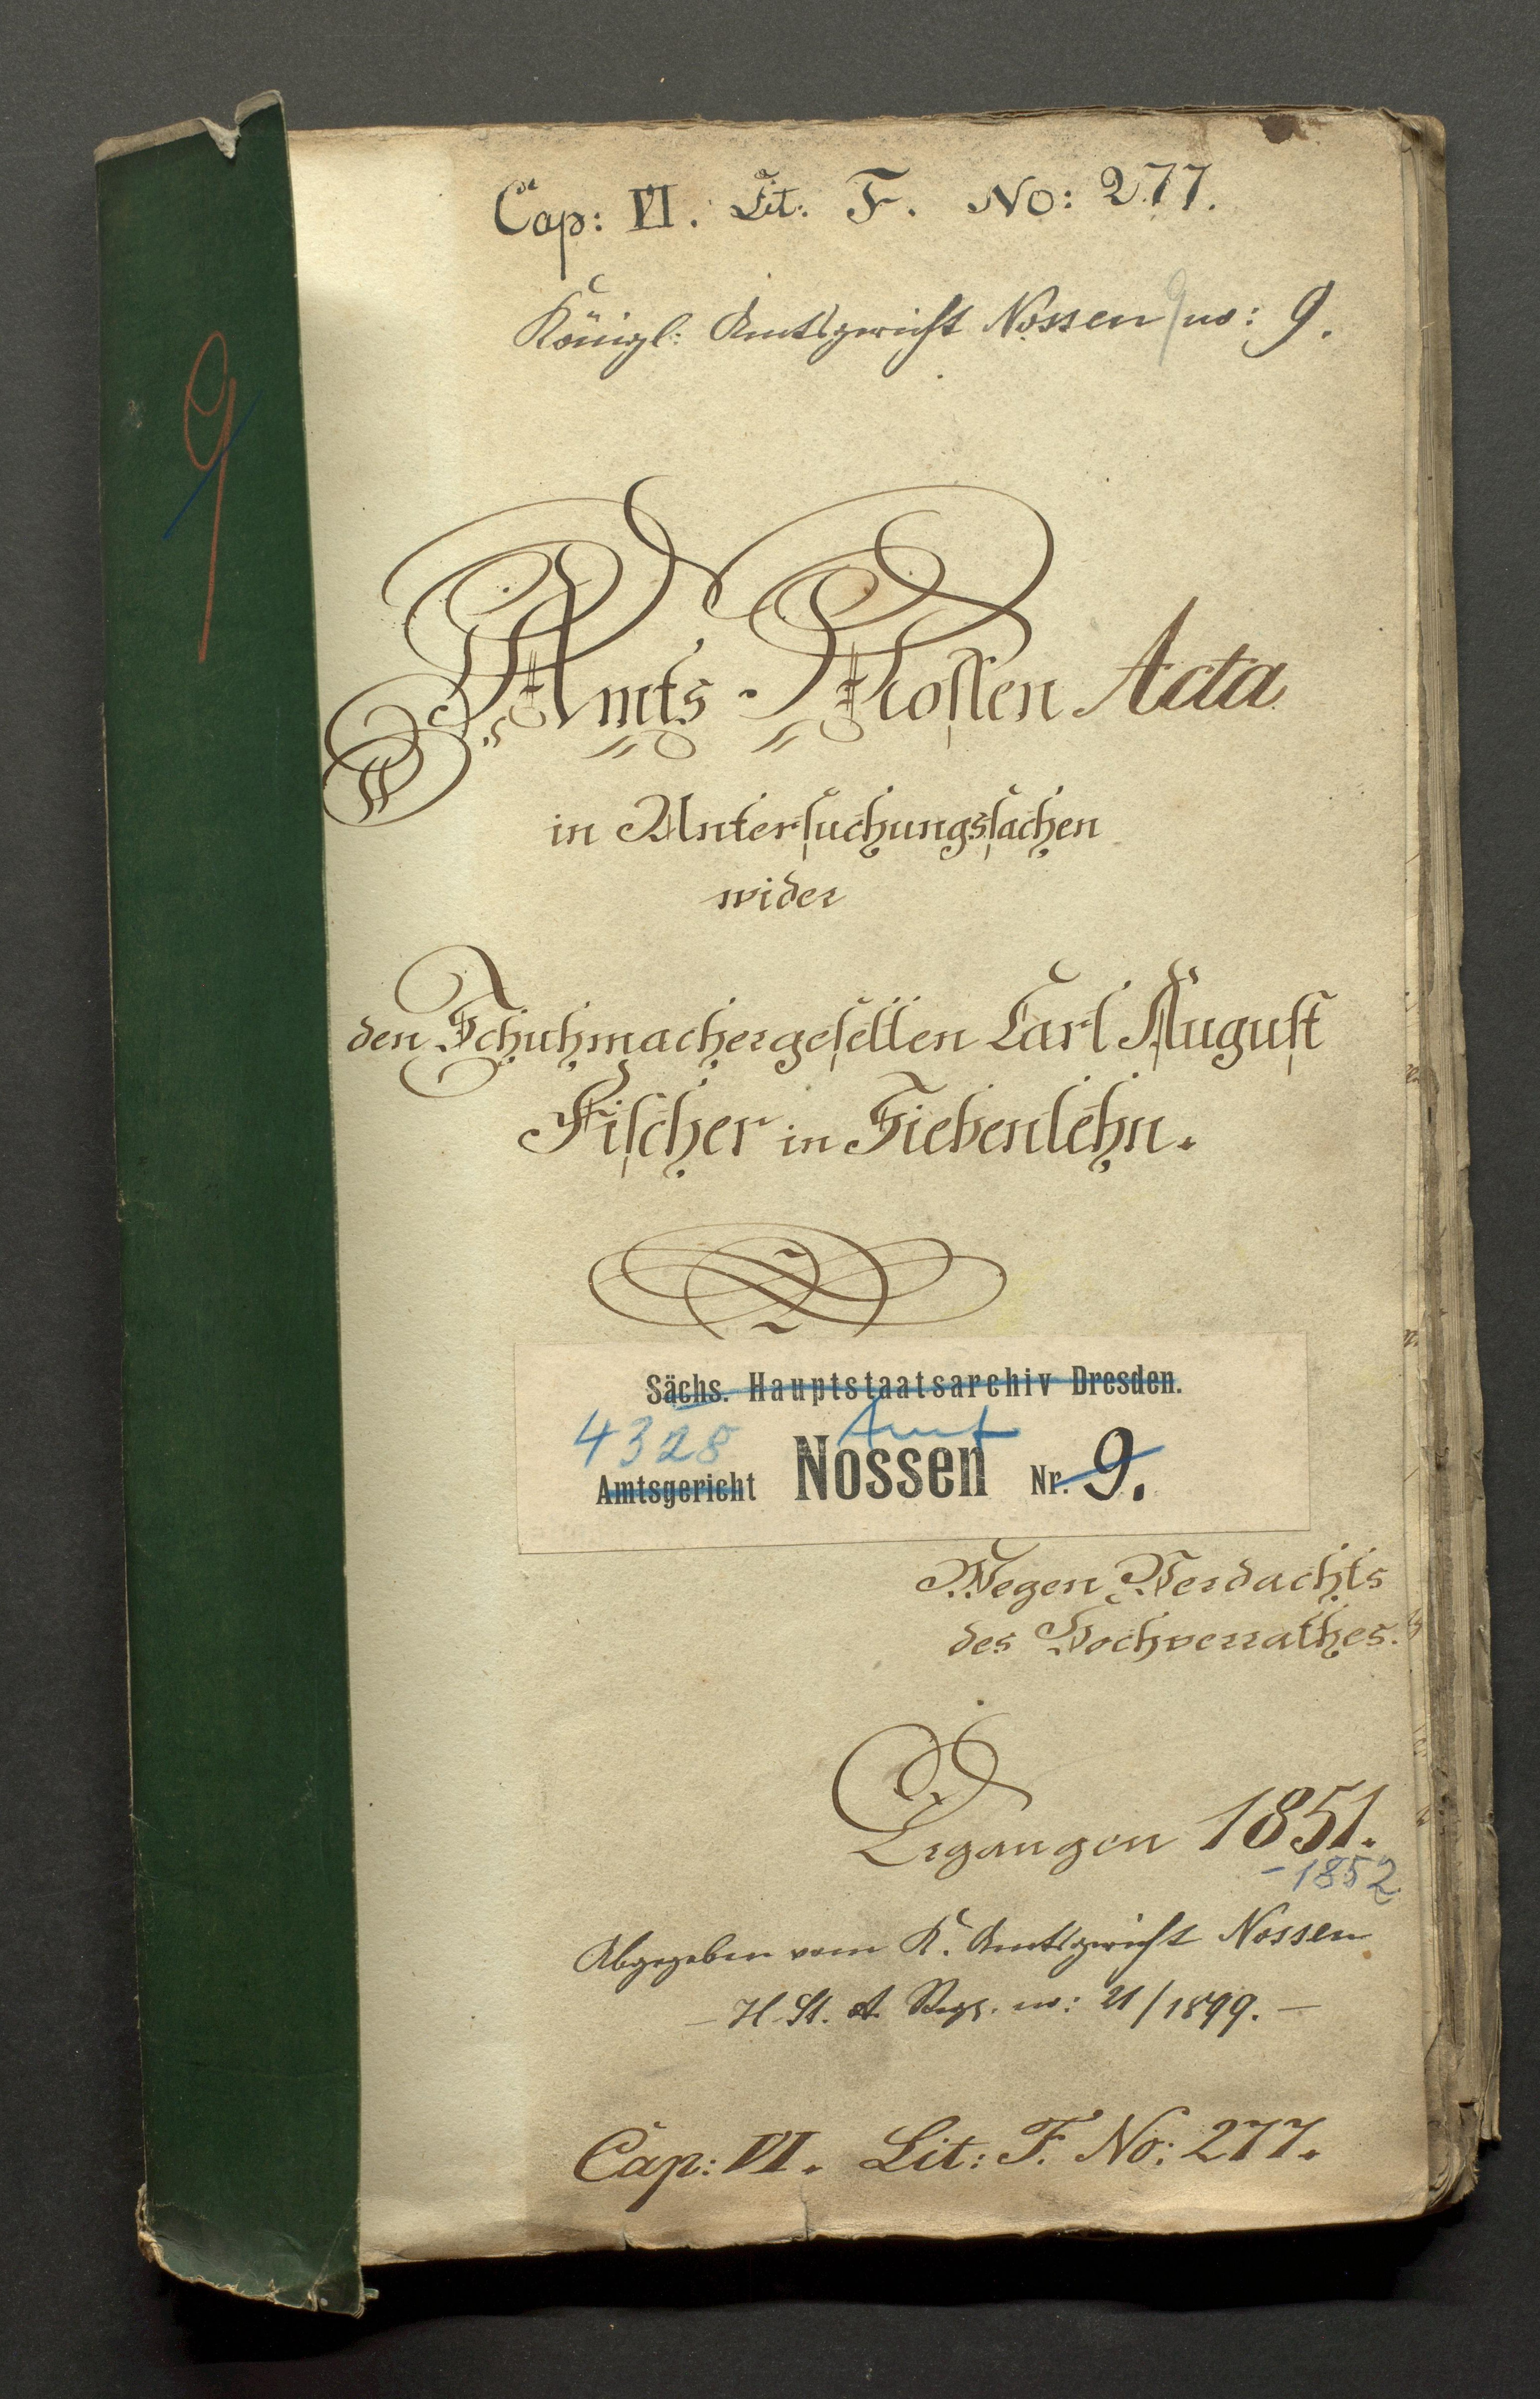 Cap: VI. Lit: F. No: 277.
Königl: Amtsgericht Nossen no: 9.
9
Amts-Nossen Acta
in Untersuchungssachen
wider
den Schuhmachergesellen Carl August
Fischer in Siebenlehn.
Sächs. Hauptstaatsarchiv Dresden.
4328 Amt
Amtsgericht Nossen Nr. 9.
Wegen Verdachts
des Hochverrathes.
Ergangen 1851.
-1852.
Abgegeben vom K. Amtsgericht Nossen
- H. St. A. Reg. no: 21/1899. -
Cap: VI. Lit: F. No: 277.